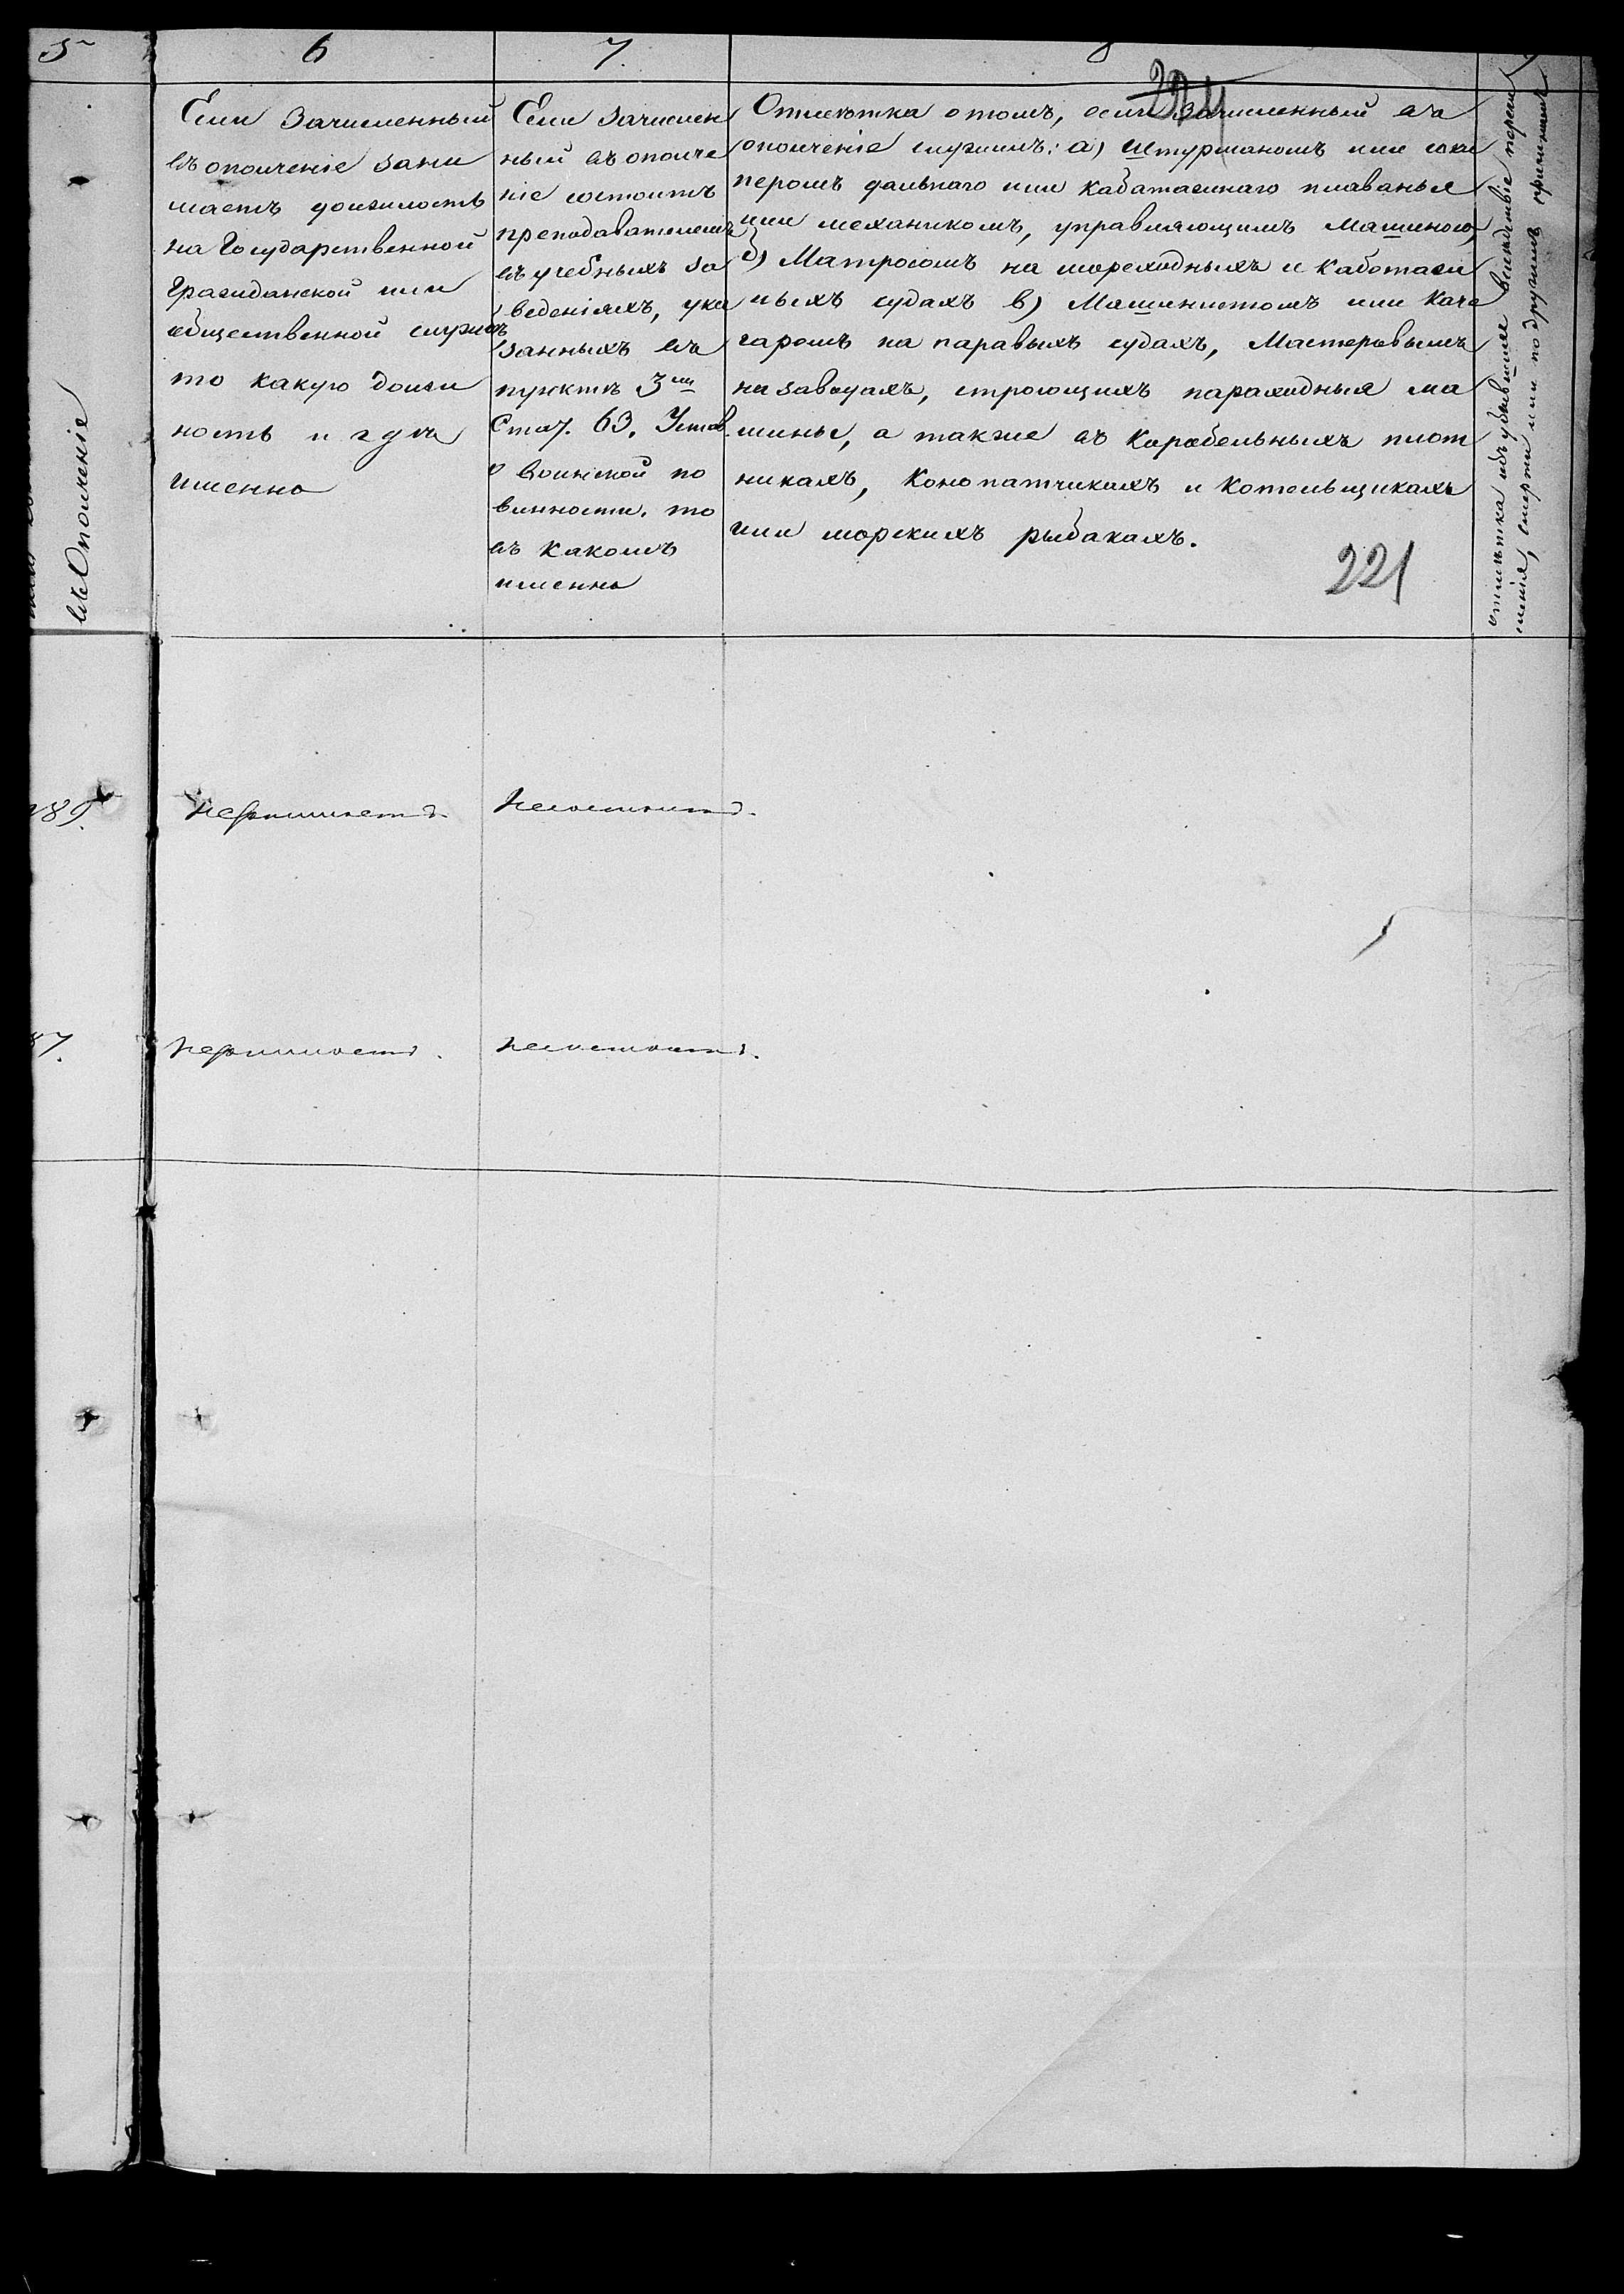 5
6
7.
8
въ Ополченіе
Если зачисленный
въ ополченіе зани
маетъ должность
на Государственной
Гражданской или
общественной службѣ
то какую долж
ность и гдѣ
именно
Если зачислен
ный въ ополче
ніе состоитъ
преподавателемъ
въ учебныхъ за
веденіяхъ, ука
занныхъ въ
пунктѣ 3мъ
Стат. 63. Устав.
о воинской по
винности, то
въ какомъ
именно
Отмѣтка о томъ, если зачисленный въ
ополченіе служитъ: а) штурманомъ или шки
перомъ дальнаго или кабатажнаго плаванья
или механикомъ, управляющимъ машиною,
б) Матросомъ на мореходныхъ и каботаж
ныхъ судахъ в) Машинистомъ или коче
гаромъ на паравыхъ судахъ, Мастеровымъ
на заводахъ, строющихъ параходныя ма
шины, а также въ Корабельныхъ плот
никахъ, Конопатчикахъ и Котельщикахъ
или морскихъ рыбакахъ.
221
отмѣтка объ убывшихъ вслѣдствіе перечи
сленія, смерти или по другимъ причинамъ
189.
незанимаетъ.
несостоитъ.
87.
незанимаетъ.
несостоитъ.